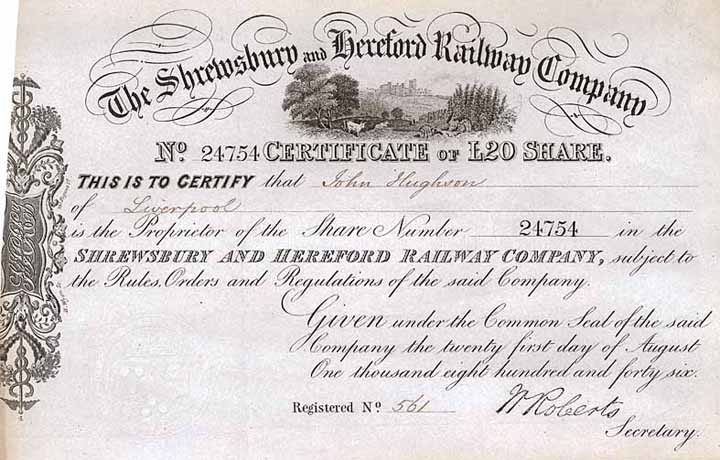 The Shrewsbury and Hereford Railway Company
No. 24754 CERTIFICATE OF £20 SHARE.
THIS IS TO CERTIFY that John Hughson
of Liverpool
is the Proprietor of the Share Number 24754 in the
SHREWSBURY AND HEREFORD RAILWAY COMPANY, subject to
the Rules, Orders and Regulations of the said Company.
Given under the Common Seal of the said
Company the twenty first day of August
One thousand eight hundred and forty six.
Registered No. 561 W Roberts
Secretary.